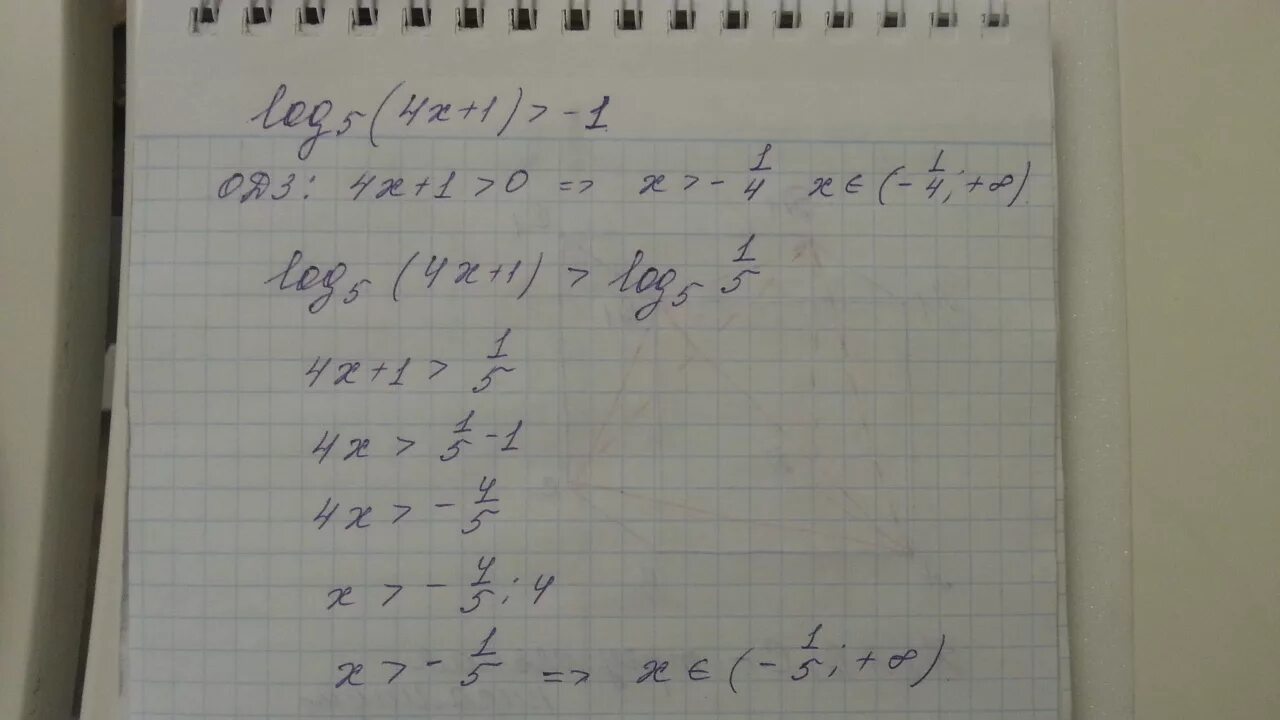 log₅(4x+1) > -1
ОДЗ: 4x+1 >0 => x > - 1/4 x ∈ (- 1/4; +∞)
log₅ (4x+1) > log₅ 1/5
4x+1 > 1/5
4x > 1/5 -1
4x > - 4/5
x > - 4/5 : 4
x > - 1/5 => x ∈ (- 1/5; +∞)